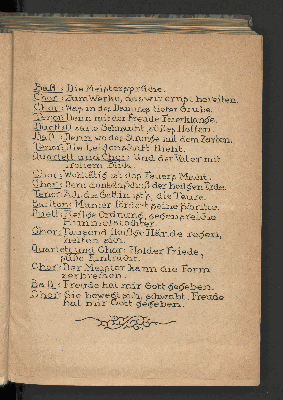 Baß: Die Meistersprüche.
Chor: Zum Werke, das wir ernst bereiten.
Chor: Was in des Dammes tiefer Grube.
Chor: Denn mit der Freude Feierklange.
Duett: O zarte Sehnsucht, süßes Hoffen.
Baß: Denn wo das Strenge mit dem Zarten.
Tenor: Die Leidenschaft flieht.
Quartett und Chor: Und der Vater mit
frohem Blick.
Chor: Wohltätig ist des Feuers Macht.
Chor: Dem dunkeln Schoß der heilgen Erde.
Tenor: Ach! die Gattin ists, die Teure.
Bariton: Munter fördert seine Schritte.
Duett: Heilge Ordnung, segensreiche
Himmelstochter.
Chor: Tausend fleißge Hände regen,
helfen sich.
Quartett und Chor: Holder Friede,
süße Eintracht.
Chor: Der Meister kann die Form
zerbrechen.
Baß: Freude hat mir Gott gegeben.
Chor: Sie bewegt sich, schwebt. Freude
hat mir Gott gegeben.